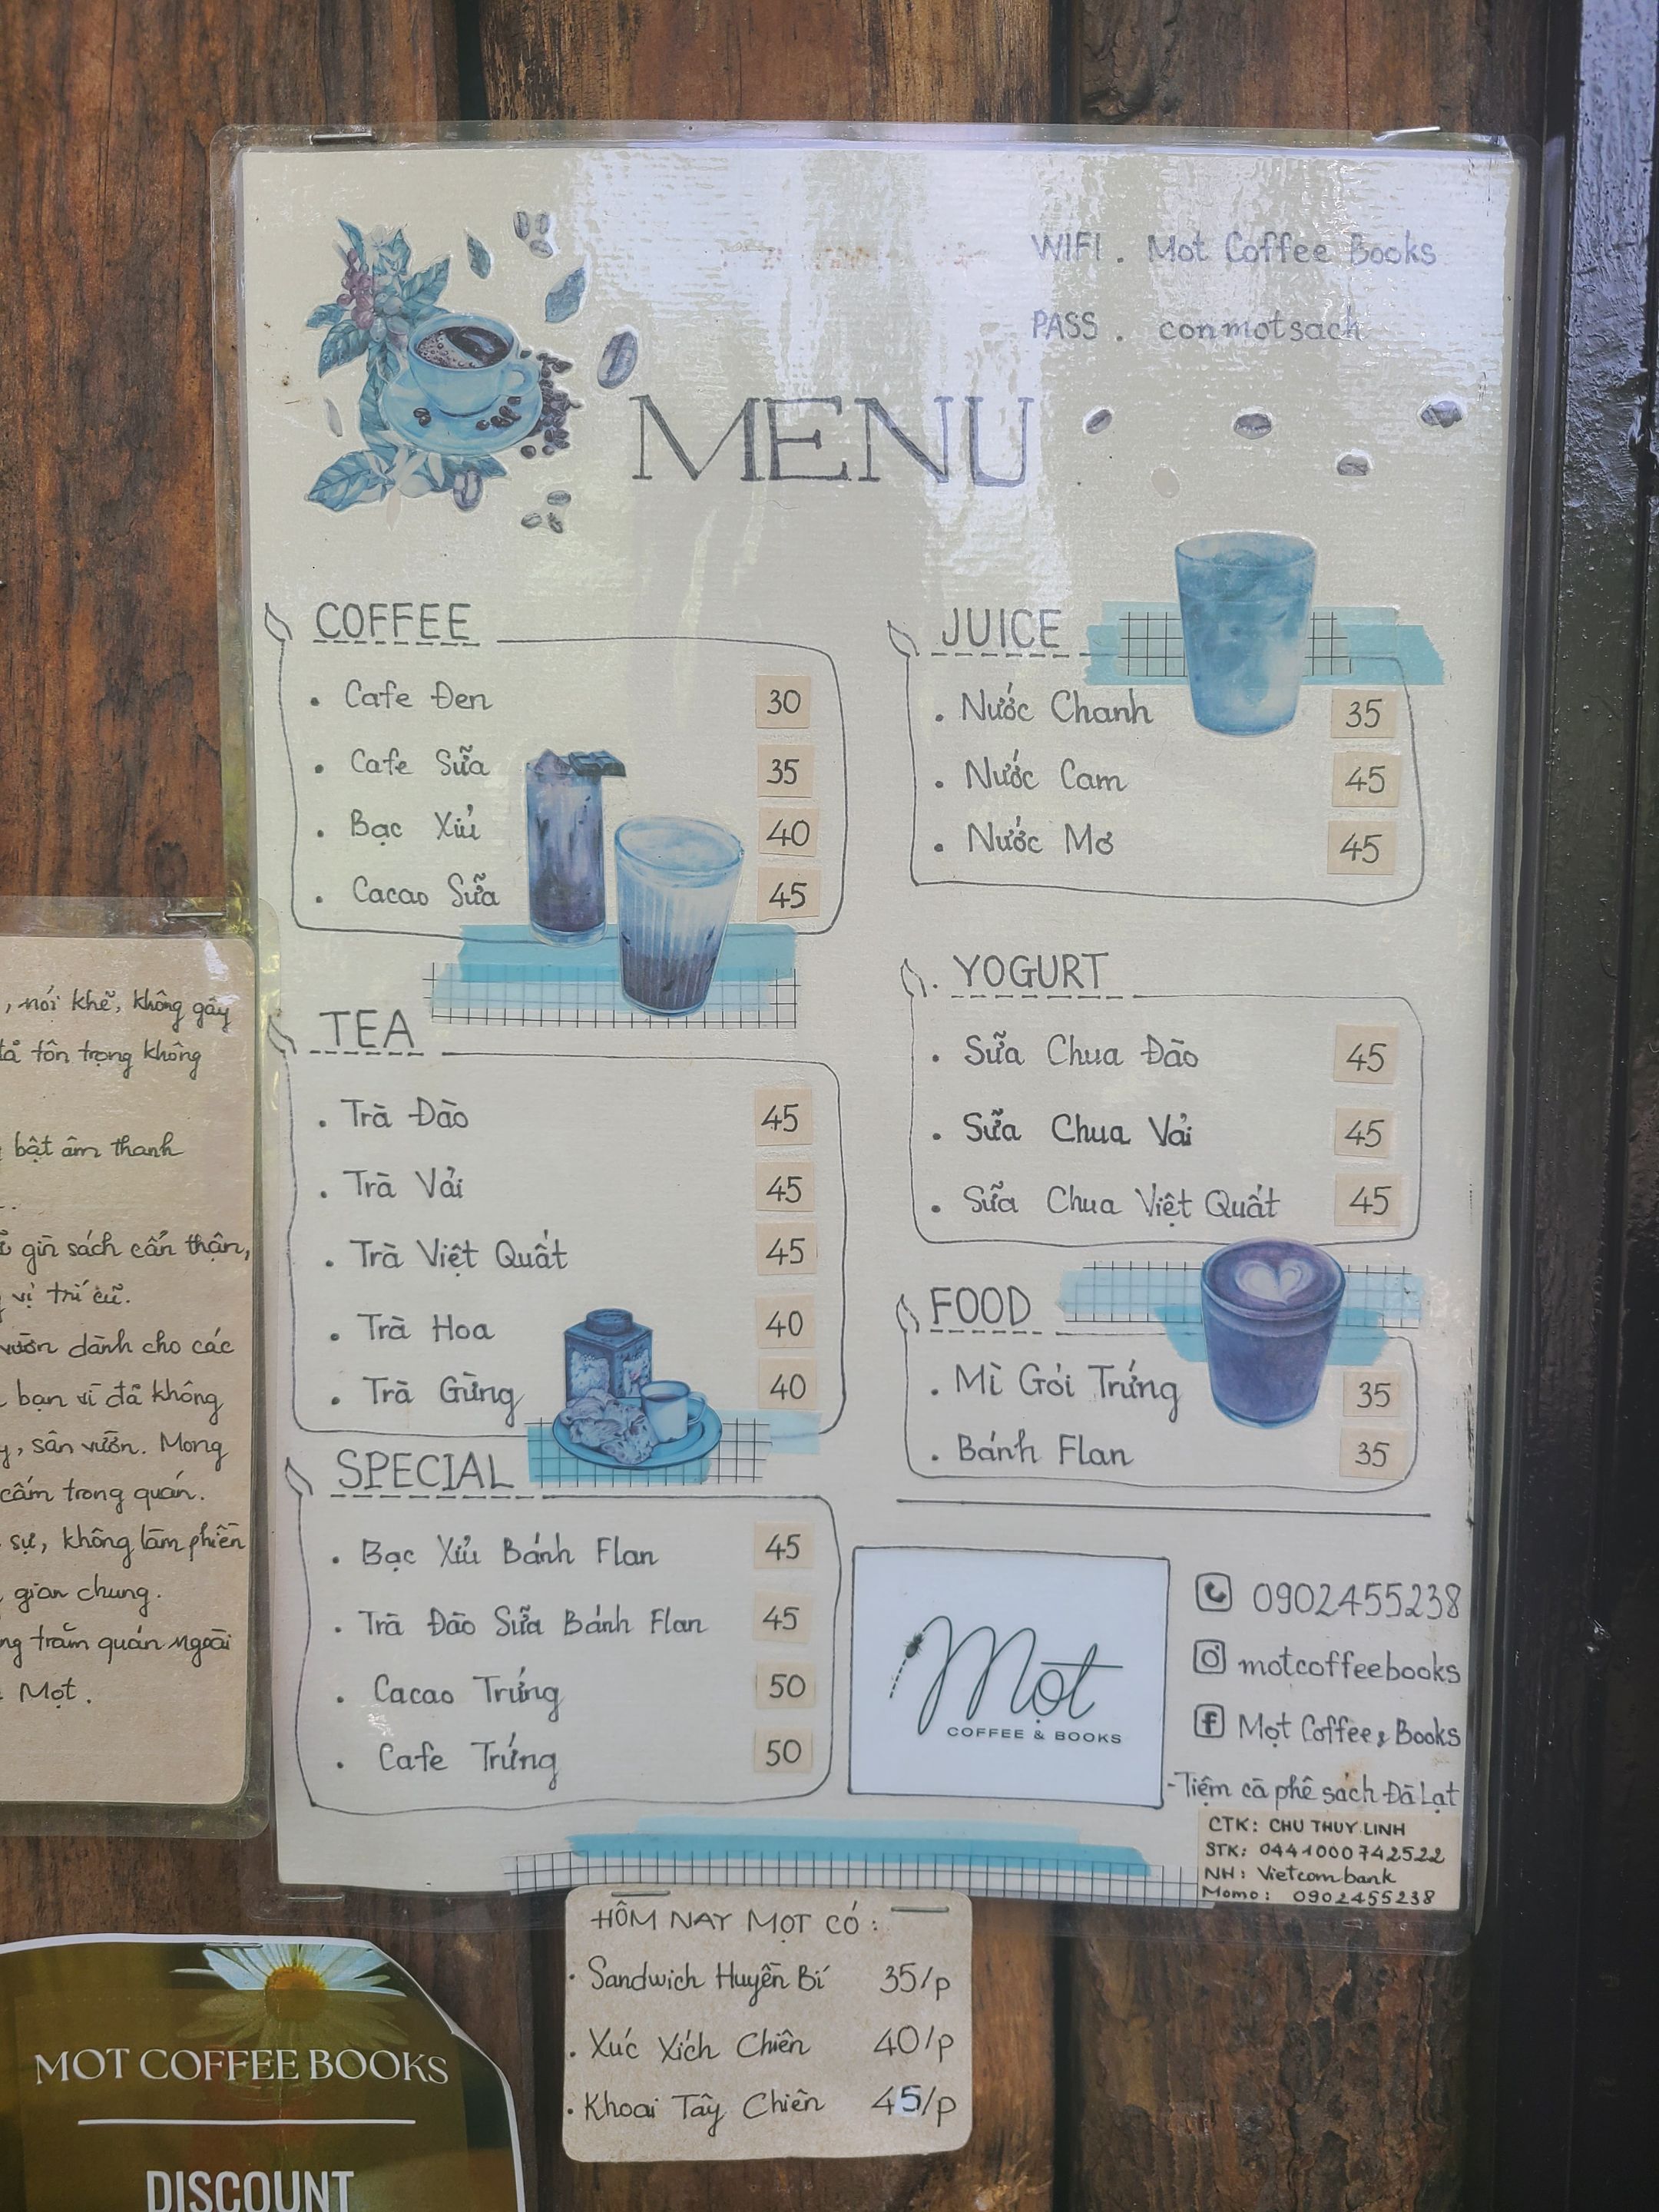 WIFI . Mot Coffee Books
PASS . conmotsach
MENU
COFFEE
. Cafe Đen 30
. Cafe Sữa 35
. Bạc Xỉu 40
. Cacao Sữa 45
TEA
. Trà Đào 45
. Trà Vải 45
. Trà Việt Quất 45
. Trà Hoa 40
. Trà Gừng 40
SPECIAL
. Bạc Xỉu Bánh Flan 45
. Trà Đào Sữa Bánh Flan 45
. Cacao Trứng 50
. Cafe Trứng 50
JUICE
. Nước Chanh 35
. Nước Cam 45
. Nước Mơ 45
YOGURT
. Sữa Chua Đào 45
. Sữa Chua Vải 45
. Sữa Chua Việt Quất 45
FOOD
. Mì Gói Trứng 35
. Bánh Flan 35
Mọt
COFFEE & BOOKS
0902455238
motcoffeebooks
Mọt Coffee & Books
-Tiệm cà phê sách Đà Lạt
CTK: CHU THUY LINH
STK: 0441000742522
NH: Vietcombank
Momo: 0902455238
HÔM NAY MỌT CÓ:
. Sandwich Huyền Bí 35/p
. Xúc Xích Chiên 40/p
. Khoai Tây Chiên 45/p
, nói khẽ, không gây
tôn trọng không
bật âm thanh
gìn sách cẩn thận,
vị trí cũ.
vườn dành cho các
bạn vì đã không
, sân vườn. Mong
cấm trong quán.
sự, không làm phiền
gian chung.
trăm quán ngoài
Mọt.
MOT COFFEE BOOKS
DISCOUNT